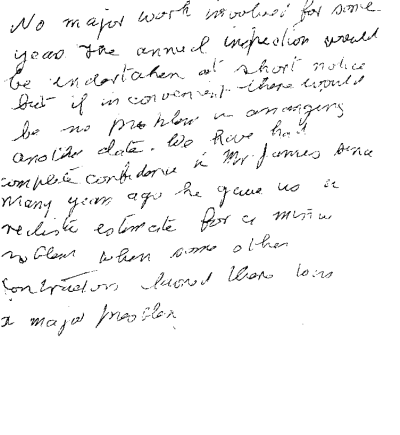 No major work involved for some
years the annual inspection would
be undertaken at short notice
but if inconvenient there would
be no problem in arranging
another date. We have had
complete confidence in Mr. James since
many years ago he gave us a
realistic estimate for a minor
problem when some other
contractors there was
a major problem